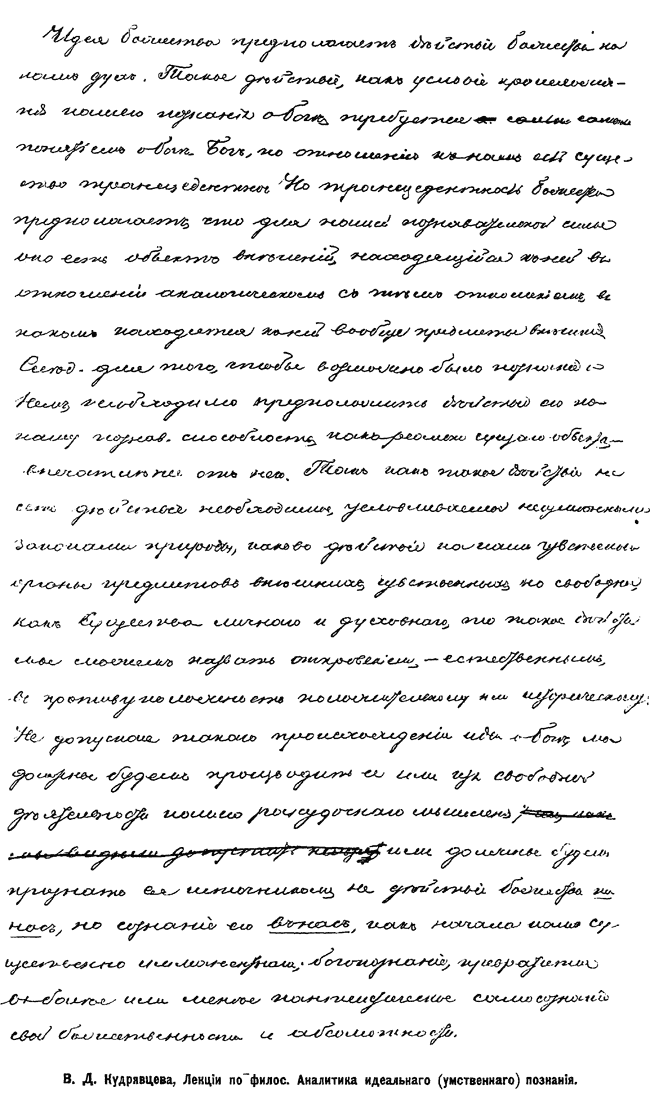 Идея божества предполагаетъ дѣйствіе божества на
нашъ духъ. Такое дѣйствіе, какъ условіе происхожде-
нія нашего познанія о богѣ, требуется самымъ
понятіемъ о богѣ. Богъ, по отношенію къ намъ есть суще-
ство трансцедентное. Но трансцедентность божества
предполагаетъ, что для нашей познавательной силы
оно есть объектъ внѣшній, находящійся къ ней въ
отношеніи аналогическомъ съ тѣмъ отношеніемъ, въ
какомъ находятся къ ней вообще предметы внѣшніе.
Слѣд. для того, чтобы возможно было познаніе о
Немъ, необходимо предположить дѣйствіе его на
нашу познав. способность, какъ реально сущаго объекта –
впечатлѣніе отъ него. Такъ какъ такое дѣйствіе не
есть дѣйствіе необходимое, условливаемое неуклонными
законами природы, каково дѣйствіе на наши чувственные
органы предметовъ внѣшнихъ, чувственныхъ, но свободное,
какъ Существа личнаго и духовнаго, то такое дѣйствіе
мы можемъ назвать откровеніемъ, – естественнымъ,
въ противуположность положительному или историческому.
Не допуская такого происхожденія идеи о богѣ, мы
должны будемъ производить ее или изъ свободной
дѣятельности нашего разсудочнаго мышленія
или должны будемъ
признать ее источникомъ не дѣйствіе божества на
насъ, но сознаніе его въ насъ, какъ начала намъ су-
щественно имманентнаго; богопознаніе превратится
въ болѣе или менѣе пантеистическое самосознаніе
своей божественности и абсолютности.
В. Д. Кудрявцева, Лекціи по филос. Аналитика идеальнаго (умственнаго) познанія.